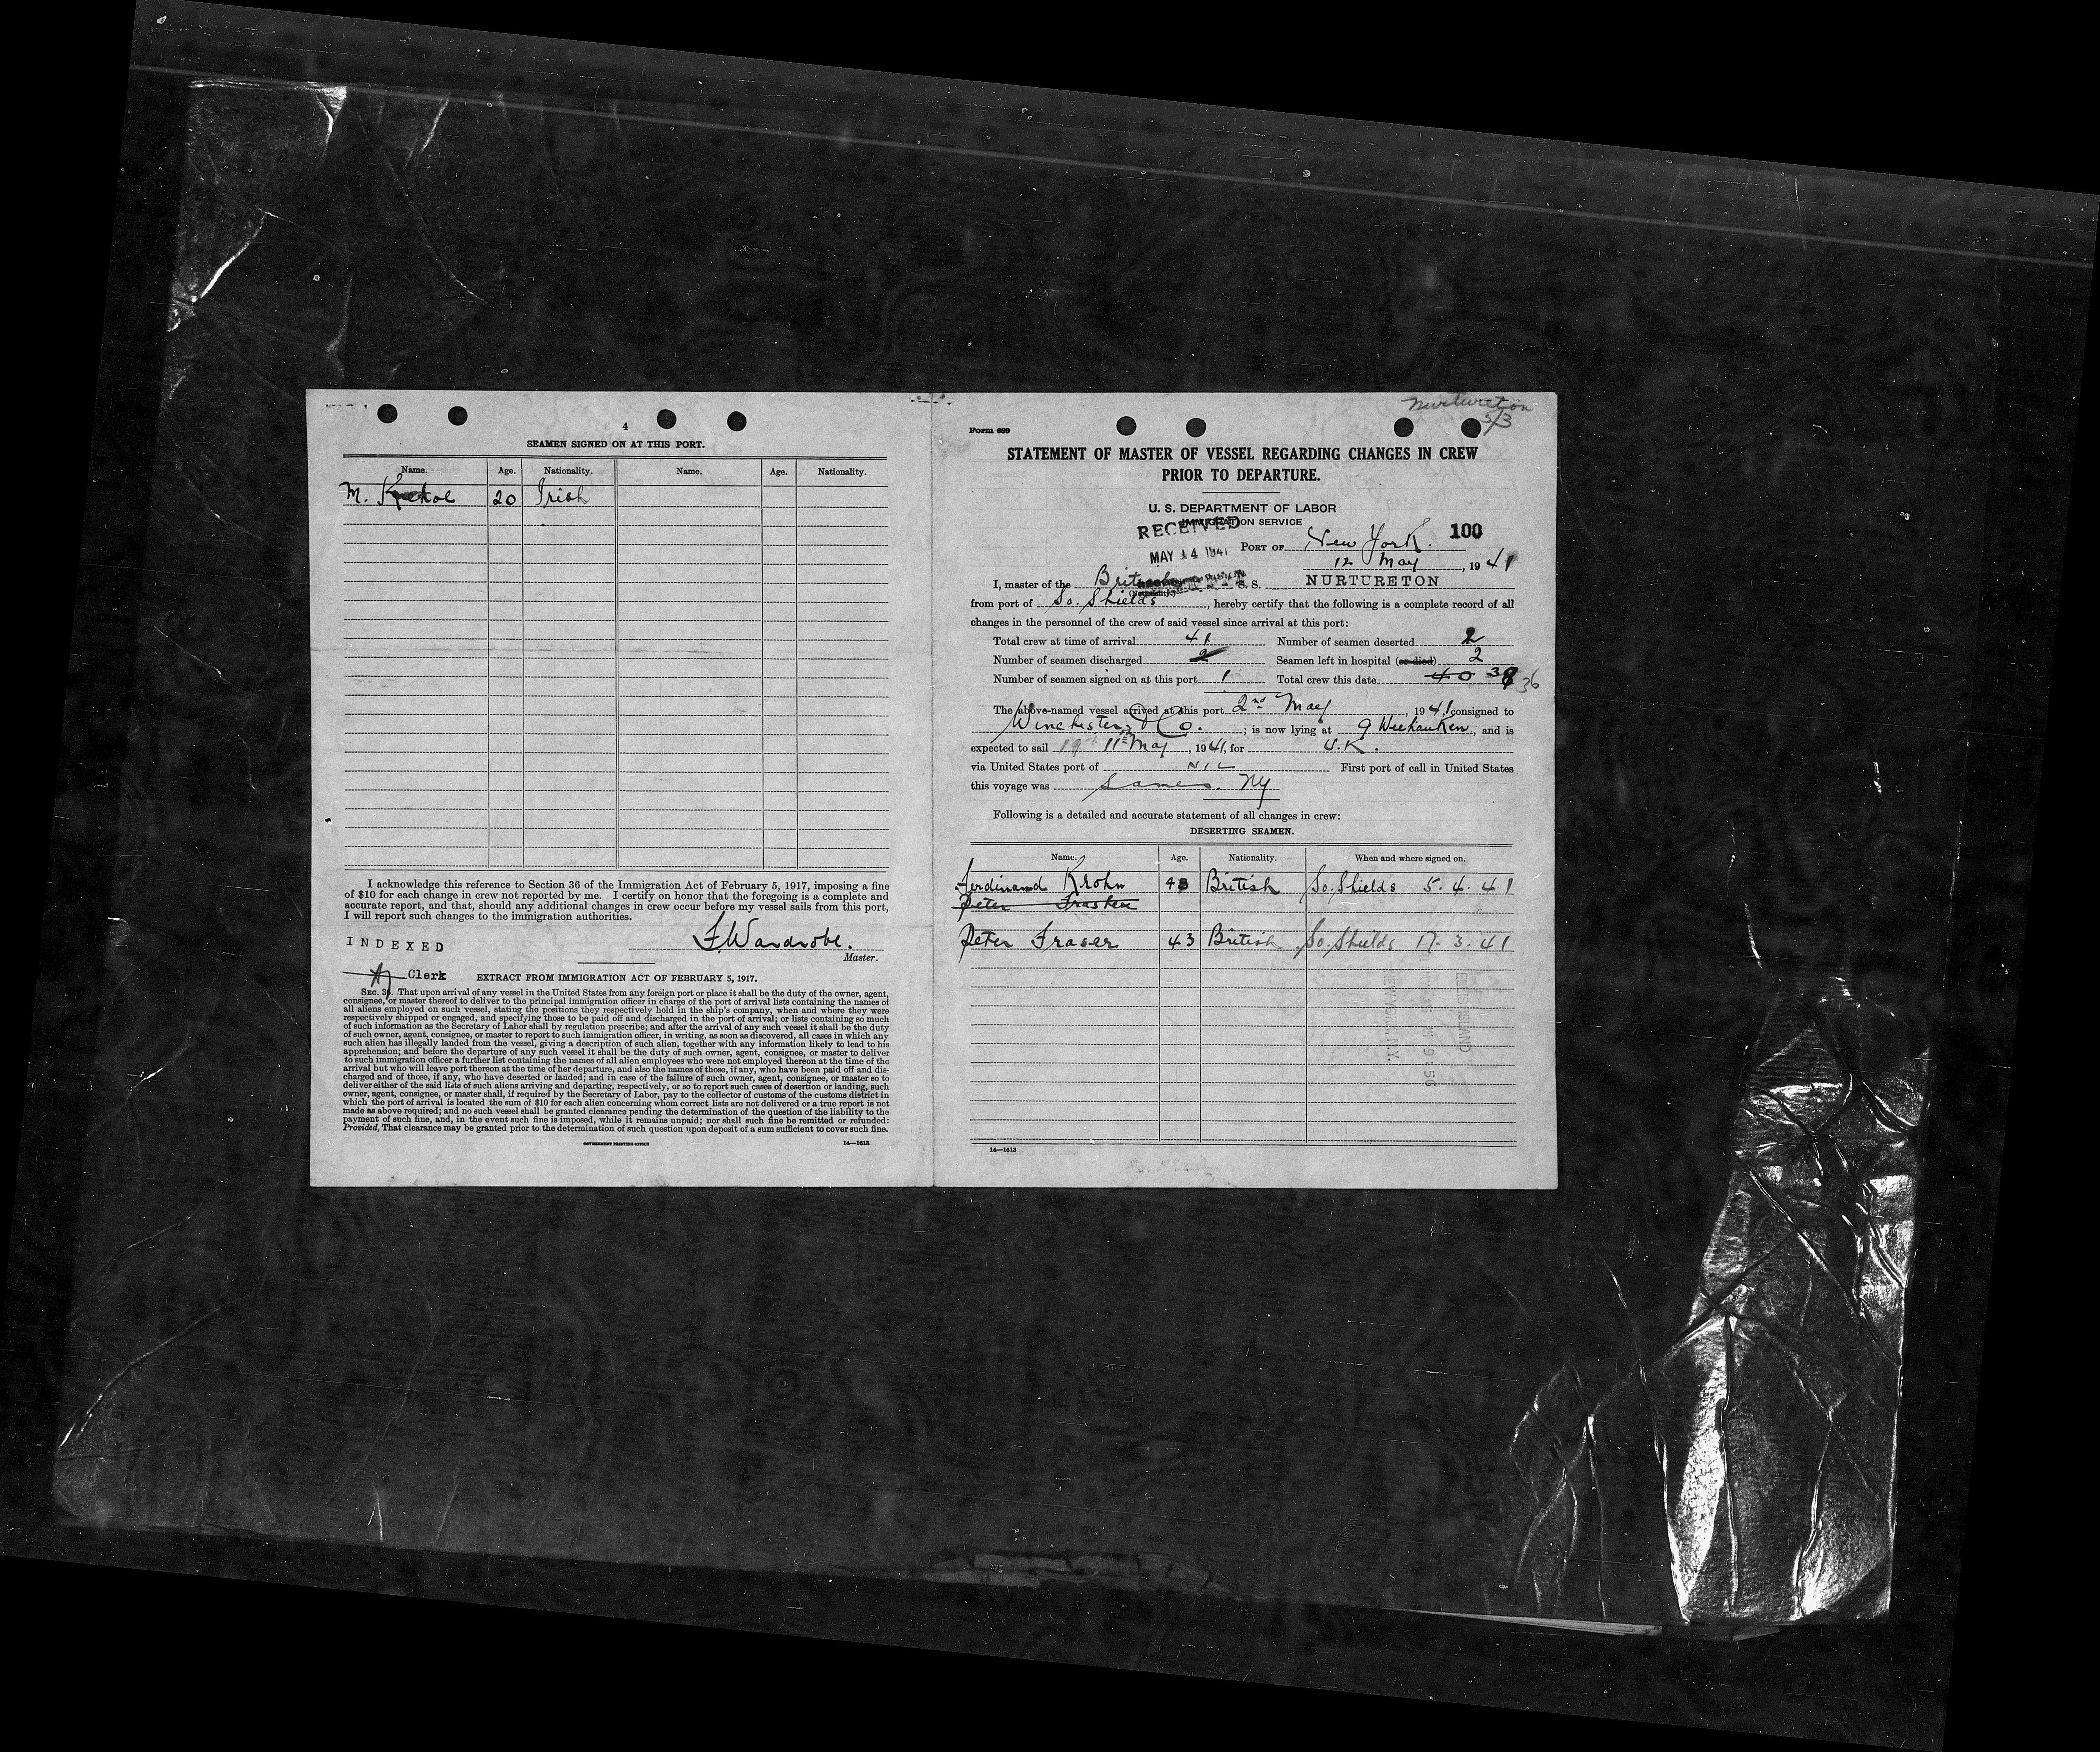 4
SEAMEN SIGNED ON AT THIS PORT.
Name. Age. Nationality. Name. Age. Nationality.
M. Kehoe 20 Irish
I acknowledge this reference to Section 36 of the Immigration Act of February 5, 1917, imposing a fine
of $10 for each change in crew not reported by me. I certify on honor that the foregoing is a complete and
accurate report, and that, should any additional changes in crew occur before my vessel sails from this port,
I will report such changes to the immigration authorities.
F. Wardrobe.
INDEXED
Master.
Clerk
EXTRACT FROM IMMIGRATION ACT OF FEBRUARY 5, 1917.
SEC. 36. That upon arrival of any vessel in the United States from any foreign port or place it shall be the duty of the owner, agent,
consignee, or master thereof to deliver to the principal immigration officer in charge of the port of arrival lists containing the names of
all aliens employed on such vessel, stating the positions they respectively hold in the ship's company, when and where they were
respectively shipped or engaged, and specifying those to be paid off and discharged in the port of arrival; or lists containing so much
of such information as the Secretary of Labor shall by regulation prescribe; and after the arrival of any such vessel it shall be the duty
of such owner, agent, consignee, or master to report to such immigration officer, in writing, as soon as discovered, all cases in which any
such alien has illegally landed from the vessel, giving a description of such alien, together with any information likely to lead to his
apprehension; and before the departure of any such vessel it shall be the duty of such owner, agent, consignee, or master to deliver
to such immigration officer a further list containing the names of all alien employees who were not employed thereon at the time of the
arrival but who will leave port thereon at the time of her departure, and also the names of those, if any, who have been paid off and dis-
charged and of those, if any, who have deserted or landed; and in case of the failure of such owner, agent, consignee, or master so to
deliver either of the said lists of such aliens arriving and departing, respectively, or so to report such cases of desertion or landing, such
owner, agent, consignee, or master shall, if required by the Secretary of Labor, pay to the collector of customs of the customs district in
which the port of arrival is located the sum of $10 for each alien concerning whom correct lists are not delivered or a true report is not
made as above required; and no such vessel shall be granted clearance pending the determination of the question of the liability to the
payment of such fine, and, in the event such fine is imposed, while it remains unpaid; nor shall such fine be remitted or refunded:
Provided, That clearance may be granted prior to the determination of such question upon deposit of a sum sufficient to cover such fine.
GOVERNMENT PRINTING OFFICE 14—1613
Nurtureton
5/3
Form 689
STATEMENT OF MASTER OF VESSEL REGARDING CHANGES IN CREW
PRIOR TO DEPARTURE.
U. S. DEPARTMENT OF LABOR
IMMIGRATION SERVICE
RECEIVED
MAY 14 1941
100
PORT OF New York.
12 May, 1941
I, master of the British S. S. NURTURETON
(Nationality)
from port of So. Shields, hereby certify that the following is a complete record of all
changes in the personnel of the crew of said vessel since arrival at this port:
Total crew at time of arrival 41 Number of seamen deserted 2
Number of seamen discharged 2 Seamen left in hospital (or died) 2
Number of seamen signed on at this port 1 Total crew this date 40 38 36
The above-named vessel arrived at this port 2nd May, 1941, consigned to
Winchester & Co.; is now lying at 9 Weehauken, and is
expected to sail 11th May, 1941, for U.K.
via United States port of NIL First port of call in United States
this voyage was Same. NY
Following is a detailed and accurate statement of all changes in crew:
DESERTING SEAMEN.
Name. Age. Nationality. When and where signed on.
Ferdinand Krohn 48 British So. Shields 5.4.41
Peter
Peter Fraser 43 British So. Shields 17.3.41
ELLIS ISLAND
14—1613